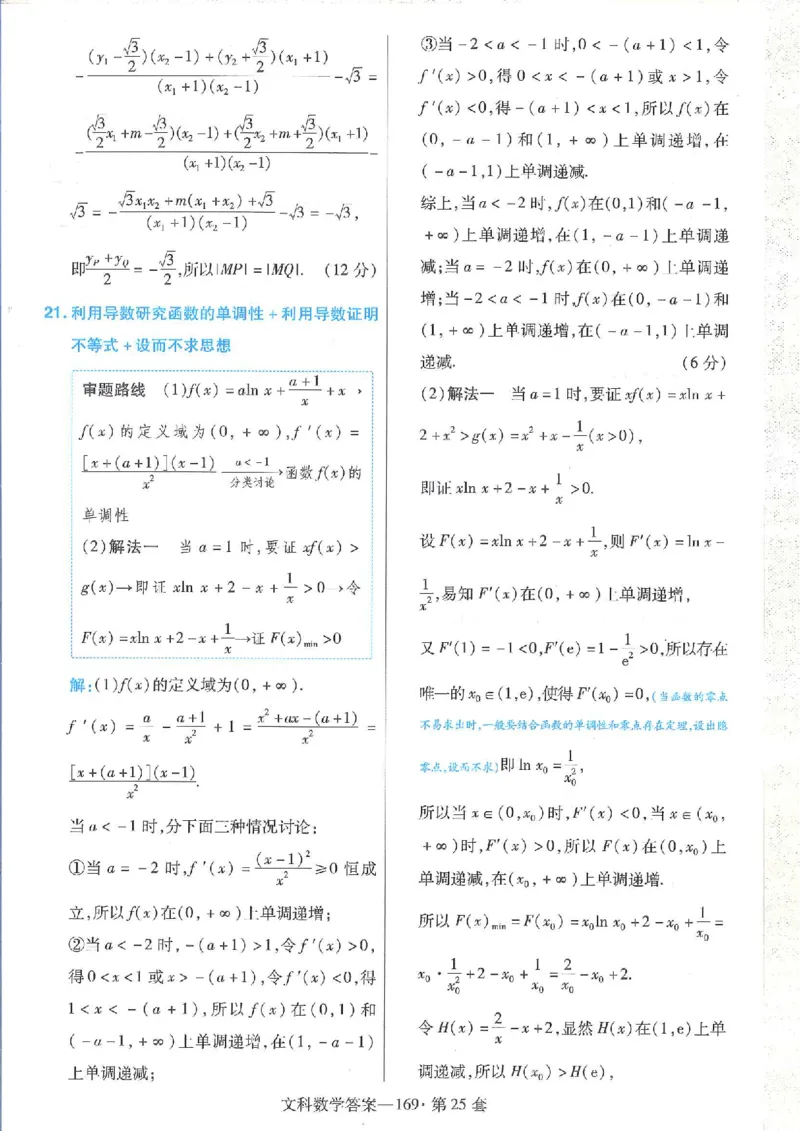 $-\frac{(y_1-\frac{\sqrt{3}}{2})(x_2-1)+(y_2+\frac{\sqrt{3}}{2})(x_1+1)}{(x_1+1)(x_2-1)}-\sqrt{3}=$
$-\frac{(\frac{\sqrt{3}}{2}x_1+m-\frac{\sqrt{3}}{2})(x_2-1)+(\frac{\sqrt{3}}{2}x_2+m+\frac{\sqrt{3}}{2})(x_1+1)}{(x_1+1)(x_2-1)}-$
$\sqrt{3}=-\frac{\sqrt{3}x_1x_2+m(x_1+x_2)+\sqrt{3}}{(x_1+1)(x_2-1)}-\sqrt{3}=-\sqrt{3}$,
即$\frac{y_P+y_Q}{2}=-\frac{\sqrt{3}}{2}$,所以|MP|=|MQ|. (12分)
21.利用导数研究函数的单调性+利用导数证明
不等式+设而不求思想
审题路线 (1)f(x)=aln x+$\frac{a+1}{x}$+x,
f(x)的定义域为(0,+∞),f′(x)=
$\frac{[x+(a+1)](x-1)}{x^2}$ $\xrightarrow[分类讨论]{a<-1}$函数f(x)的
单调性
(2)解法一 当a=1时,要证xf(x)>
g(x)→即证xln x+2-x+$\frac{1}{x}$>0→令
F(x)=xln x+2-x+$\frac{1}{x}$→证F(x)$_{min}$>0
解:(1)f(x)的定义域为(0,+∞).
f′(x)=$\frac{a}{x}-\frac{a+1}{x^2}+1=\frac{x^2+ax-(a+1)}{x^2}$=
$\frac{[x+(a+1)](x-1)}{x^2}$.
当a<-1时,分下面三种情况讨论:
①当a=-2时,f′(x)=$\frac{(x-1)^2}{x^2}$≥0恒成
立,所以f(x)在(0,+∞)上单调递增;
②当a<-2时,-(a+1)>1,令f′(x)>0,
得0<x<1或x>-(a+1),令f′(x)<0,得
1<x<-(a+1),所以f(x)在(0,1)和
(-a-1,+∞)上单调递增,在(1,-a-1)
上单调递减;
③当-2<a<-1时,0<-(a+1)<1,令
f′(x)>0,得0<x<-(a+1)或x>1,令
f′(x)<0,得-(a+1)<x<1,所以f(x)在
(0,-a-1)和(1,+∞)上单调递增,在
(-a-1,1)上单调递减.
综上,当a<-2时,f(x)在(0,1)和(-a-1,
+∞)上单调递增,在(1,-a-1)上单调递
减;当a=-2时,f(x)在(0,+∞)上单调递
增;当-2<a<-1时,f(x)在(0,-a-1)和
(1,+∞)上单调递增,在(-a-1,1)上单调
递减. (6分)
(2)解法一 当a=1时,要证xf(x)=xln x+
2+x$^2$>g(x)=x$^2$+x-$\frac{1}{x}$(x>0),
即证xln x+2-x+$\frac{1}{x}$>0.
设F(x)=xln x+2-x+$\frac{1}{x}$,则F′(x)=ln x-
$\frac{1}{x^2}$,易知F′(x)在(0,+∞)上单调递增,
又F′(1)=-1<0,F′(e)=1-$\frac{1}{e^2}$>0,所以存在
唯一的x$_0$∈(1,e),使得F′(x$_0$)=0,(当函数的零点
不易求出时,一般要结合函数的单调性和零点存在定理,设出隐
零点,设而不求)即ln x$_0$=$\frac{1}{x_0^2}$,
所以当x∈(0,x$_0$)时,F′(x)<0,当x∈(x$_0$,
+∞)时,F′(x)>0,所以F(x)在(0,x$_0$)上
单调递减,在(x$_0$,+∞)上单调递增.
所以F(x)$_{min}$=F(x$_0$)=x$_0$ln x$_0$+2-x$_0$+$\frac{1}{x_0}$=
x$_0$·$\frac{1}{x_0^2}$+2-x$_0$+$\frac{1}{x_0}$=$\frac{2}{x_0}$-x$_0$+2.
令H(x)=$\frac{2}{x}$-x+2,显然H(x)在(1,e)上单
调递减,所以H(x$_0$)>H(e),
文科数学答案—169·第25套